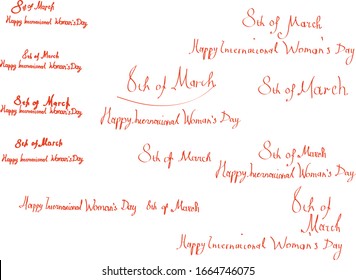 8th of March
Happy Internacional Woman's Day
8th of March
Happy Internacional Woman's Day
8th of March
Happy Internacional Woman's Day
8th of March
Happy Internacional Woman's Day
8th of March
Happy Internacional Woman's Day
8th of March
Happy Internacional Woman's Day
8th of March
8th of March
8th of March
Happy Internacional Woman's Day
Happy Internacional Woman's Day 8th of March
8th of
March
Happy Internacional Woman's Day
shutterstock.com · 1664746075